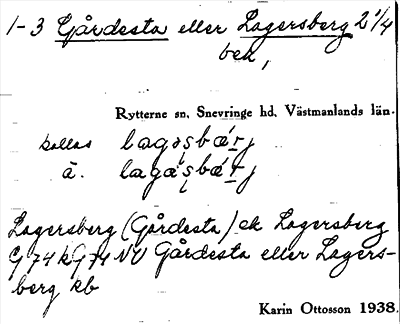 1-3 Gårdesta eller Lagersberg 2 1/4
bek,
Rytterne sn, Snevringe hd, Västmanlands län.
kallas lagəʂbárj
ä. lagaʂbárj
Lagersberg (Gårdesta) ek Lagersberg
G 74 k G 74 NV Gårdesta eller Lagers-
berg kb
Karin Ottosson 1938.